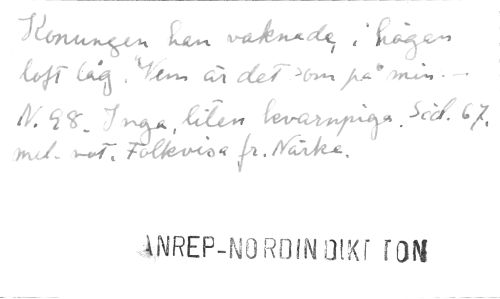 Konungen han vaknade, i högan
loft låg. "Vem är det som på min. -
N. 98. Inga, liten kvarnpiga. Sid. 67.
med not. Folkvisa fr. Närke.
ANREP-NORDIN DIKT TON